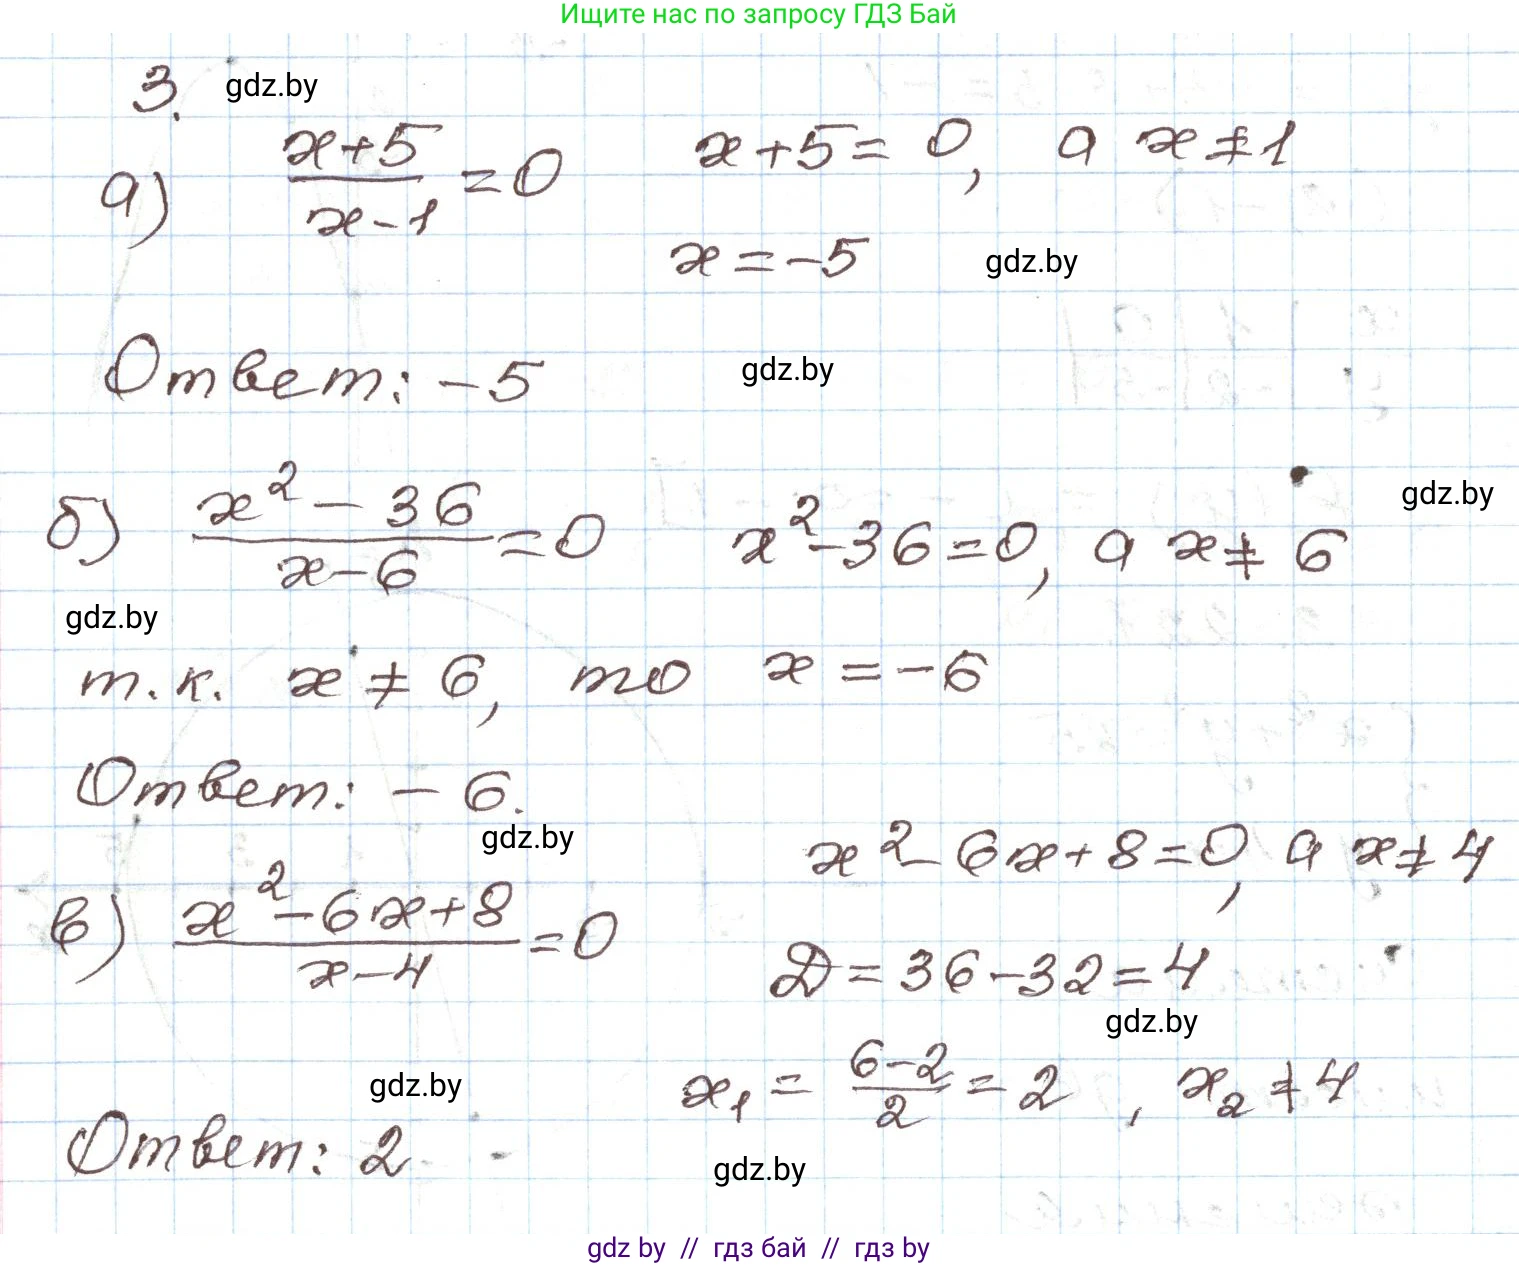 Ищите нас по запросу ГДЗ Бай
3. gdz.by
а) (x+5)/(x-1) = 0   x+5=0, а x≠1
x=-5 gdz.by
Ответ: -5 gdz.by
б) (x²-36)/(x-6) = 0   x²-36=0, а x≠6 gdz.by
gdz.by
т.к. x≠6, то x=-6
Ответ: -6.
gdz.by
x²-6x+8=0, а x≠4
в) (x²-6x+8)/(x-4) = 0
D=36-32=4
gdz.by
gdz.by x₁ = (6-2)/2 = 2, x₂≠4
Ответ: 2
gdz.by
gdz by // гдз бай // гдз by